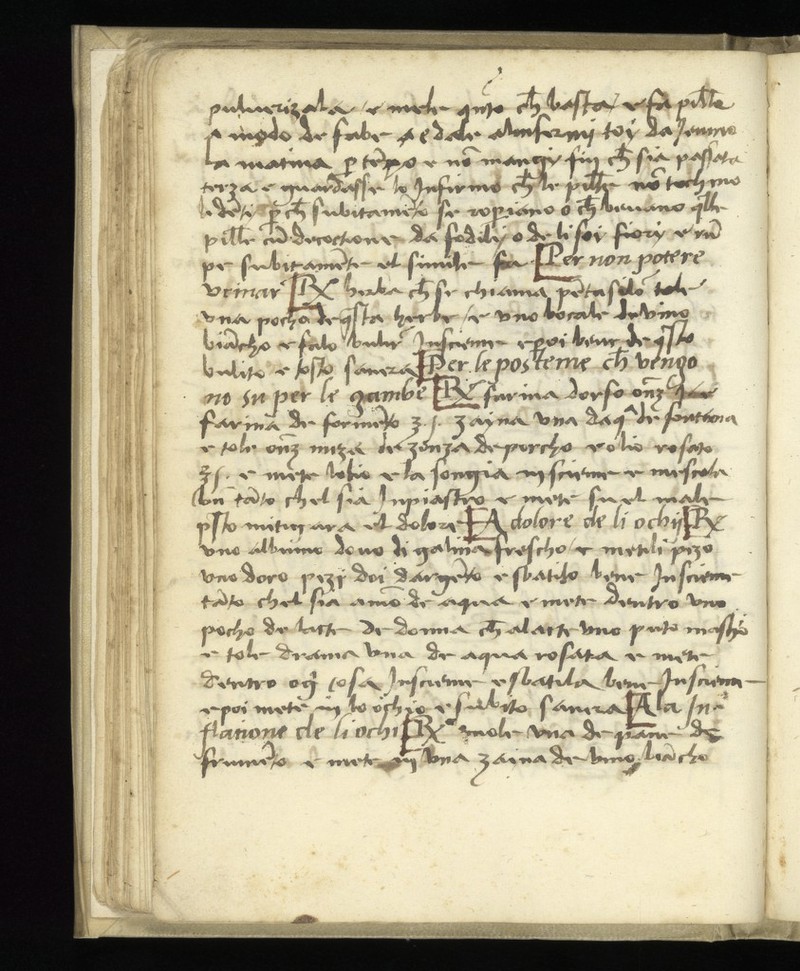 pulverizala e mete qnto ch basta e fa pille
a modo de fabe e dale al infermj da Jenuno
la matina p tēpo e nō mangij fin ch sia passata
terza e guardasse lo Infirmo ch le pille nō tochino
li dēti p ch subitamēto se ropiano o ch bevano qlle
pille cū decoctione da fodilj o de li soi fiorj e rū
pe subitamēte el simile fa Per non potere
urinar Rx herba ch se chiama pētasilō tole
una pocha de qsta herbe e uno bocale de vino
biācho e falo bulir Insieme e poi bene de qsto
bulito e tosto sanera Per le posteme ch vengo
no su per le gambe Rx farina dorso onz
farina de formēto ʒ j. zayna una daqª de fontana
e tole onz meza de zonza de porcho e olio rosato
ʒ j. e mete lolio e la songia insieme e mescola
bn tāto chel sia Inpiastro e mete su el male
psto mitigara el dolore A dolore de li ochij Rx
uno albumo dovo di galina frescho e metili pezo
uno doro pezj doi dargēto e sbatilo bene Insieme
tāto chel sia amō de aqua e mete dentro uno
pocho de latte de donna ch alatte uno puto maschio
e tole drama una de aqua rosata e mete
dentro ogi cosa Insieme e sbatila bene Insieme
e poi mete in lo ochio e subito sanera A la In
flatione de li ochi Rx mole una de pane de
frumēto e mete in una zaina de vino biācho